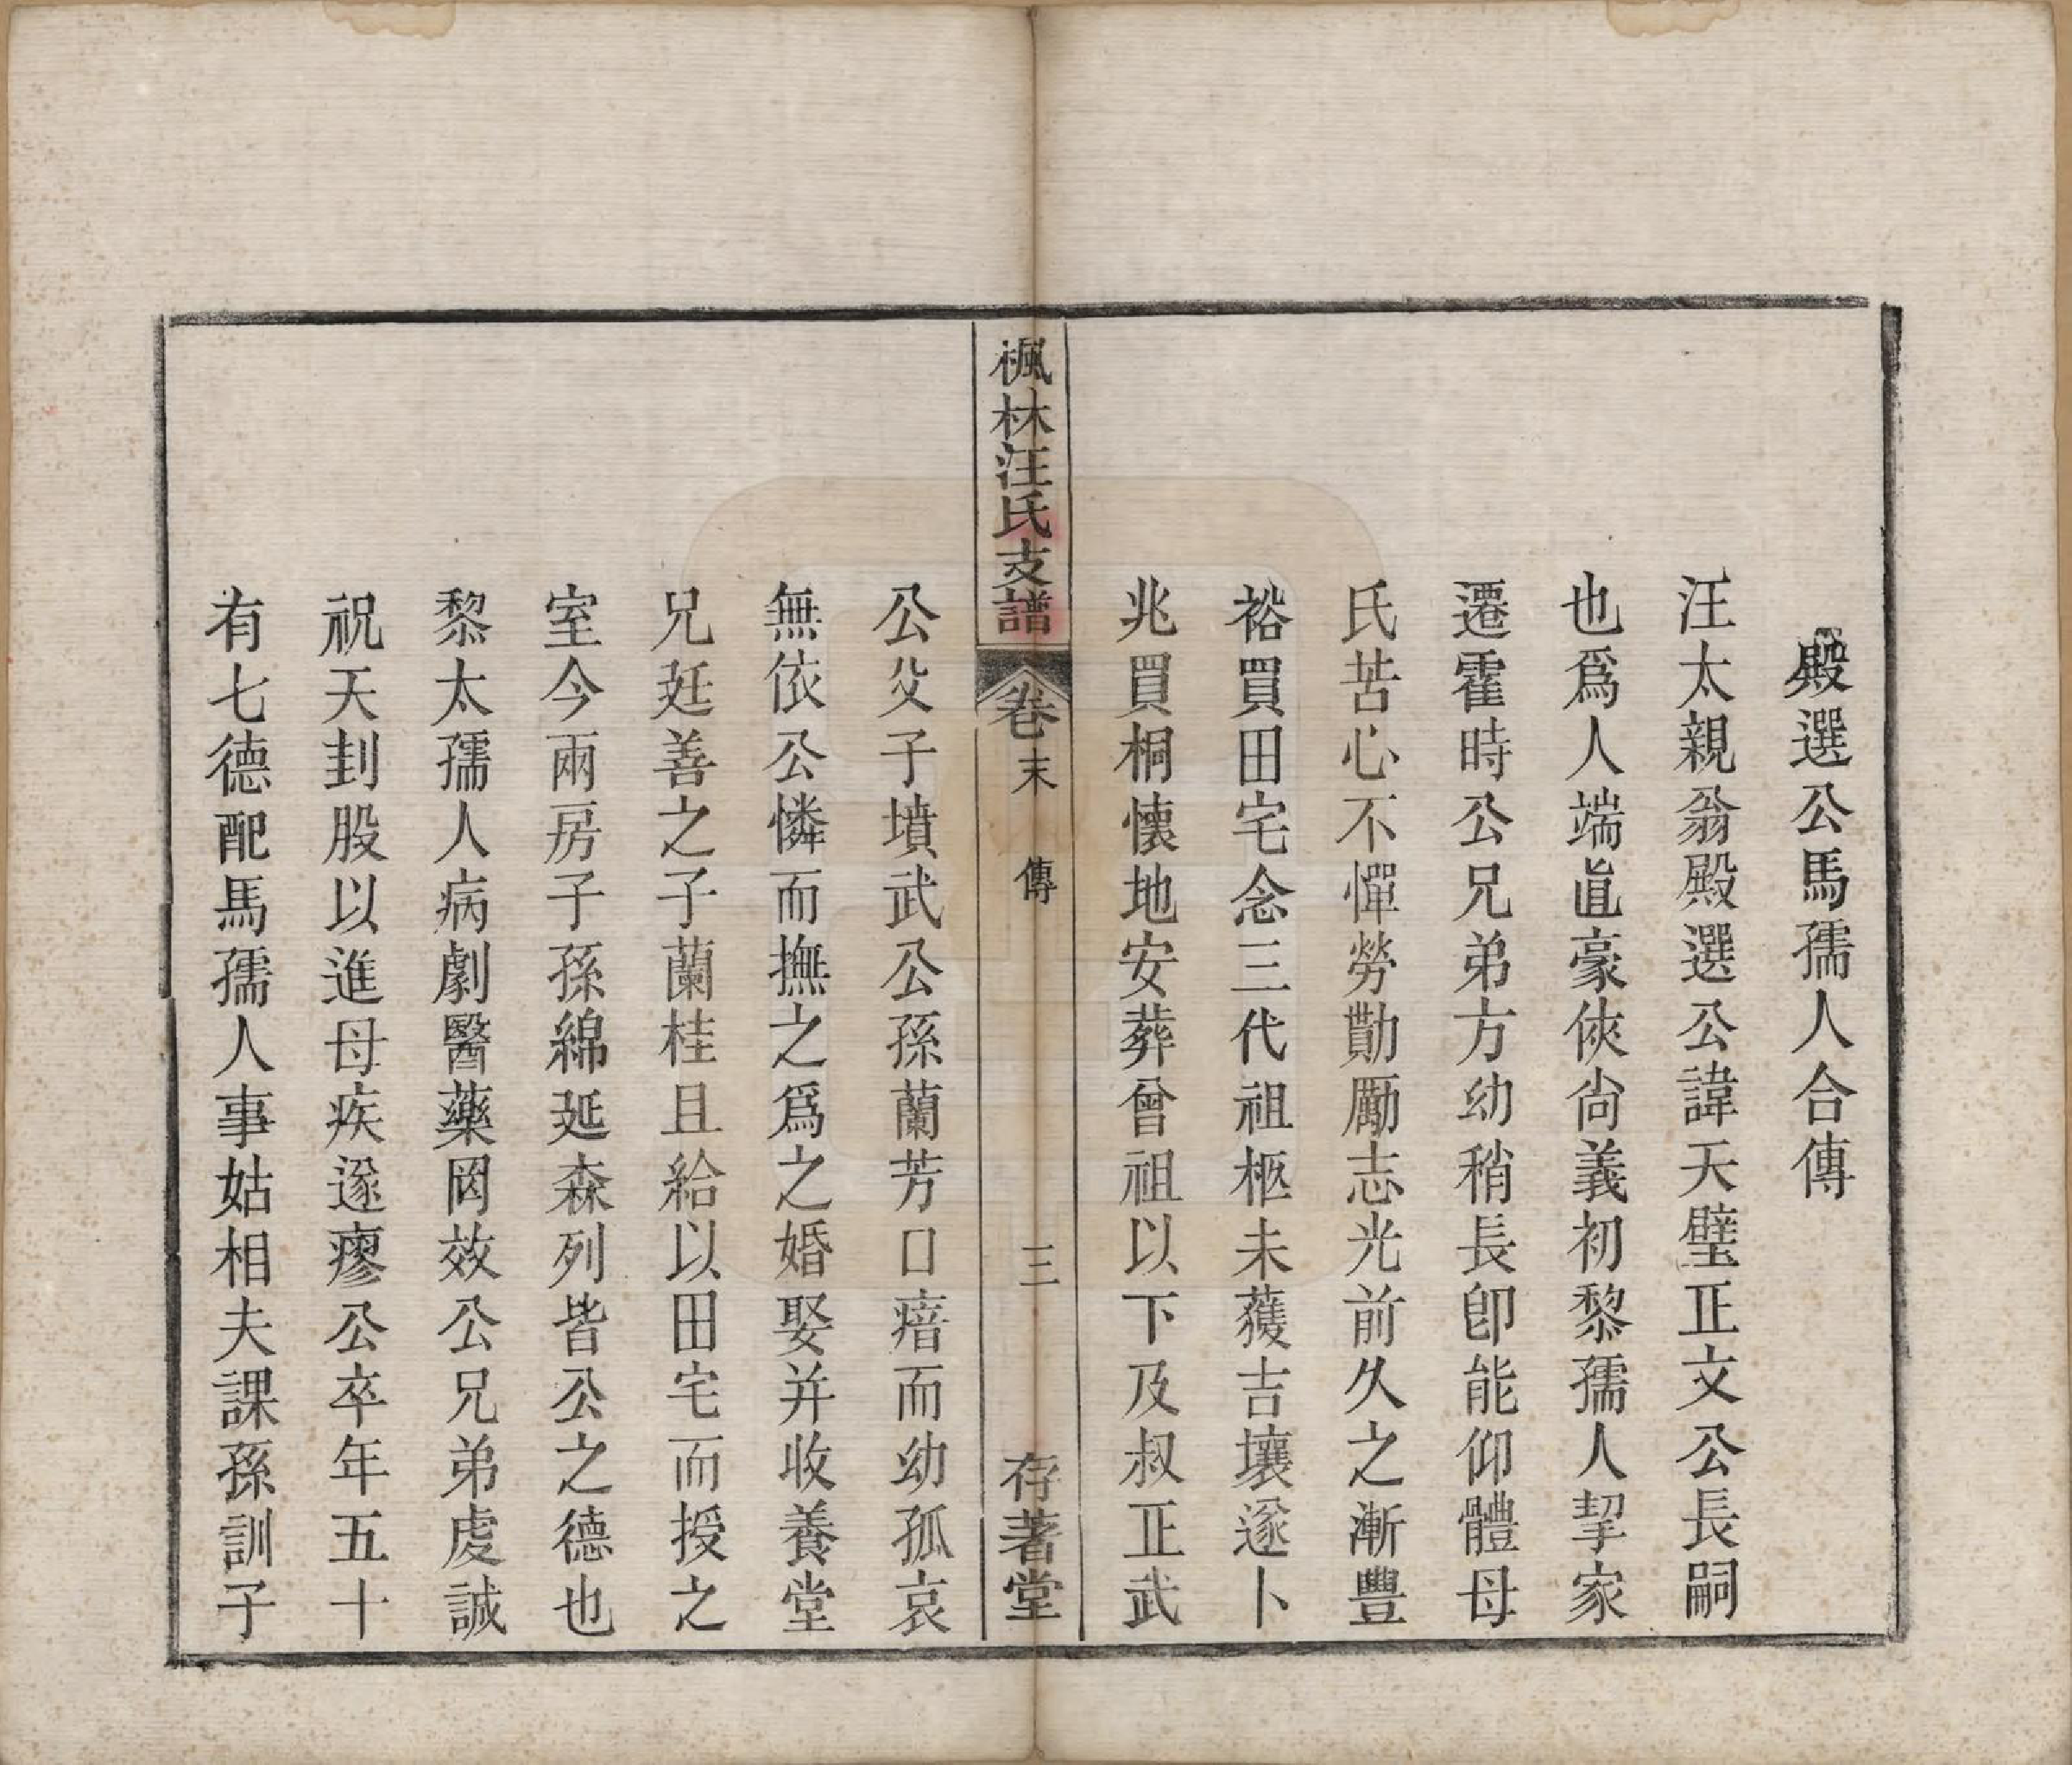 殿選公馬孺人合傳
汪太親翁殿選公諱天璧正文公長嗣
也爲人端直豪俠尙義初黎孺人挈家
遷霍時公兄弟方幼稍長卽能仰體母
氏苦心不憚勞勩勵志光前久之漸豐
裕買田宅念三代祖柩未獲吉壤遂卜
兆買桐懷地安葬曾祖以下及叔正武
楓林汪氏支譜
卷末
傳
三
存著堂
公父子墳武公孫蘭芳口瘖而幼孤哀
無依公憐而撫之爲之婚娶并收養堂
兄廷善之子蘭桂且給以田宅而授之
室今兩房子孫綿延森列皆公之德也
黎太孺人病劇醫藥罔效公兄弟虔誠
祝天刲股以進母疾遂瘳公卒年五十
有七德配馬孺人事姑相夫課孫訓子